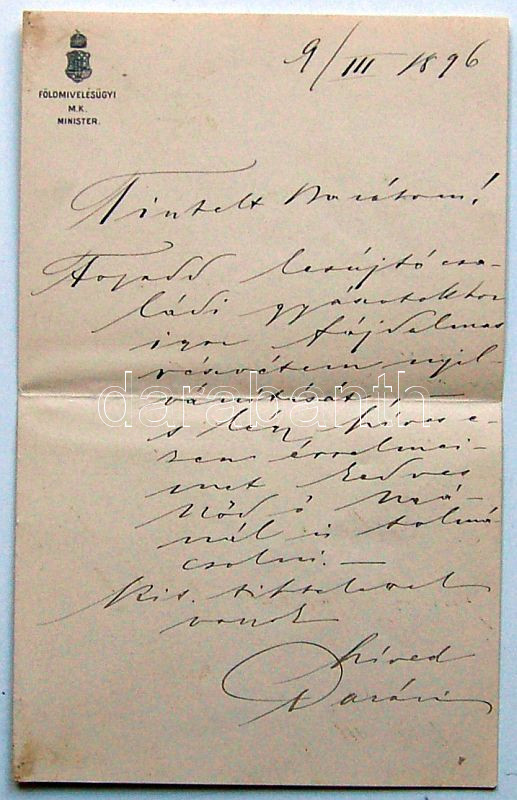 FÖLDMIVELÉSÜGYI
M.K.
MINISTER.
9/III 1896
Tisztelt Barátom!
Fogadd lesújtó csa-
ládi gyászotokhoz
igaz fájdalmas
részvétem nyil-
vánitását, -
s légy szíves e-
zen érzelmei-
met kedves
Nőd ő Nsá-
nál is tolmá
csolni. -
Kis. tisztelettel
vagyok
híved
Darányi
darabanth